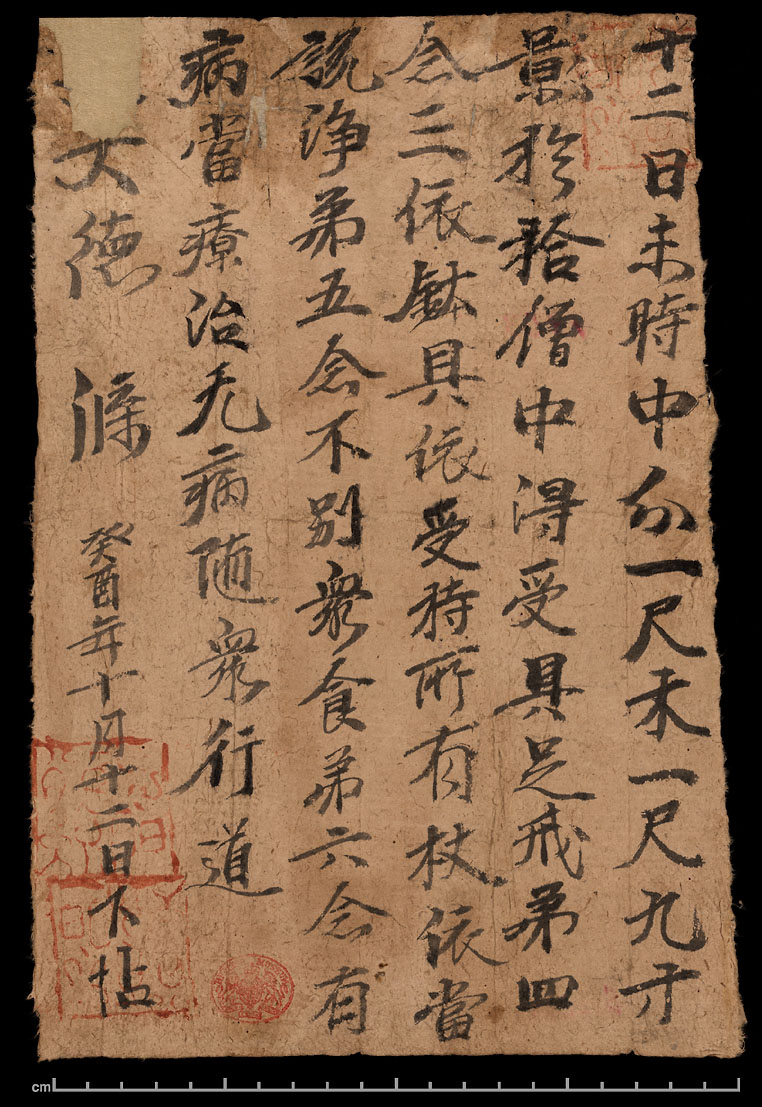 十二日未時中分一尺未一尺九寸
影於拾僧中得受具足戒弟四
念三依鉢具依受持所有杖依當
說淨弟五念不別衆食弟六念有
病當療治无病随衆行道
大德 滌 癸酉年十月十二日下帖
cm